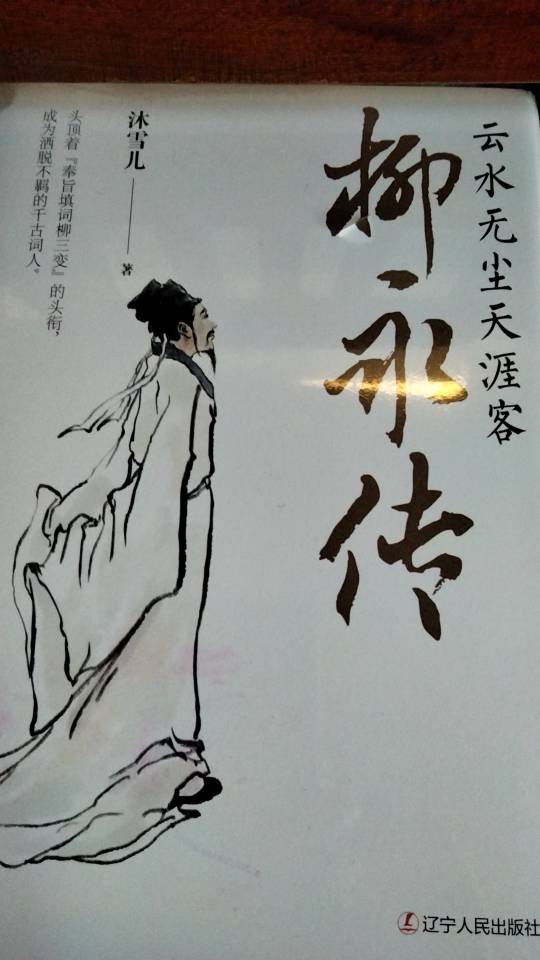 云水无尘天涯客
柳永传
沐雪儿
著
头顶着『奉旨填词柳三变』的头衔，
成为洒脱不羁的千古词人。
辽宁人民出版社